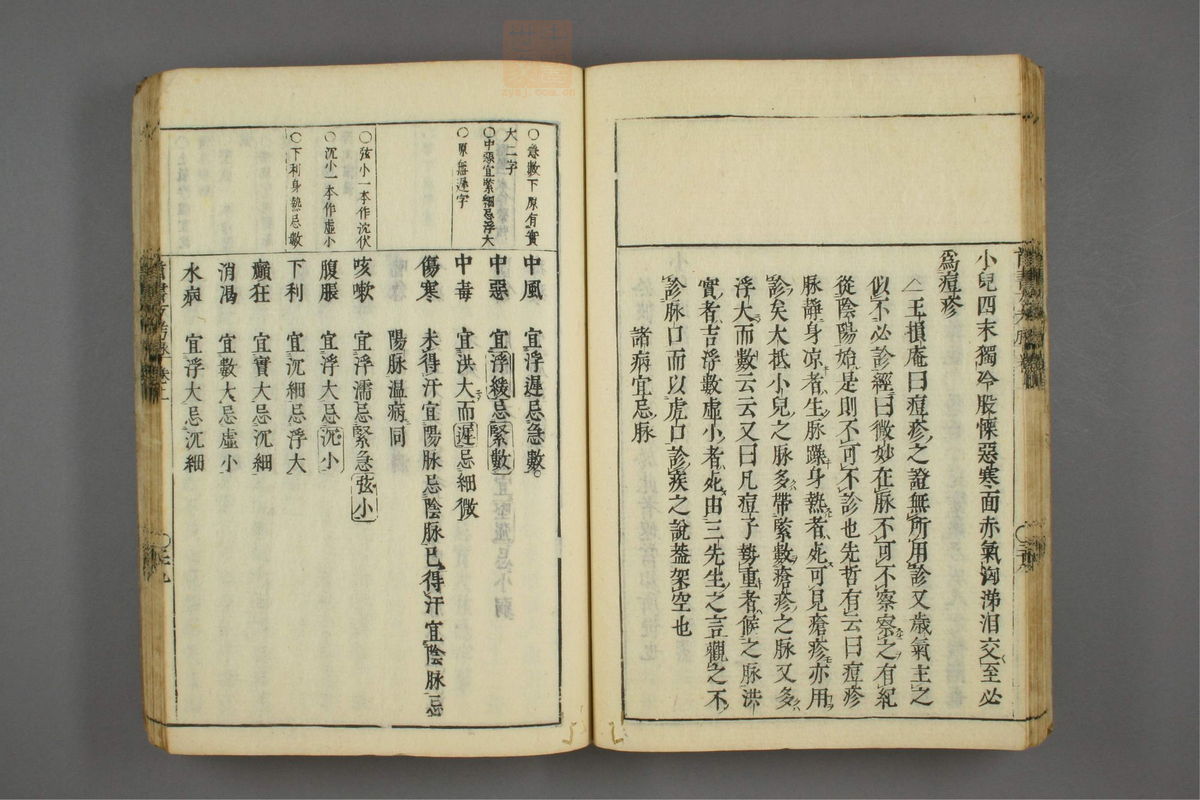 小兒四末獨冷股慄惡寒面赤氣洶涕泪交至必
為痘疹
王損庵曰痘疹之證無所用診又歲氣主之
似不必診經曰微妙在脉不可不察察之有紀
從陰陽始是則不可不診也先哲有云曰痘疹
脉靜身凉者生脉躁身熱者死可見瘡疹亦用
診矣大抵小兒之脉多帶緊數瘡疹之脉又多
浮大而數云云又曰凡痘子勢重者候之脉洪
實者吉浮數虛小者死由三先生之言觀之不
診脉口而以虎口診疾之說葢架空也
諸病宜忌脉
○急數下原有實
大二字
○中惡宜緊細忌浮大
○原無遲字
○弦小一本作沈伏
○沉小一本作虛小
○下利身熱忌數
中風 宜浮遲忌急數
中惡 宜浮緩忌緊數
中毒 宜洪大而遲忌細微
傷寒 未得汗宜陽脉忌陰脉已得汗宜陰脉忌
陽脉温病同
咳嗽 宜浮濡忌緊急弦小
腹脹 宜浮大忌沉小
下利 宜沉細忌浮大
癲狂 宜實大忌沉細
消渴 宜數大忌虛小
水病 宜浮大忌沉細